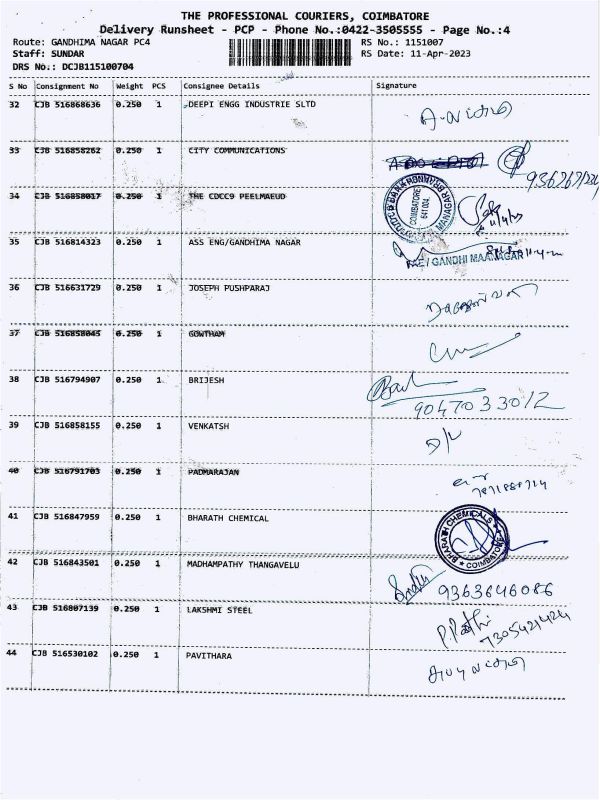 THE PROFESSIONAL COURIERS, COIMBATORE
Delivery Runsheet - PCP - Phone No.:0422-3505555 - Page No.:4
Route: GANDHIMA NAGAR PC4 RS No.: 1151007
Staff: SUNDAR RS Date: 11-Apr-2023
DRS No.: DCJB115100704
S No Consignment No Weight PCS Consignee Details Signature
32 CJB 516868636 0.250 1 DEEPI ENGG INDUSTRIE SLTD
33 CJB 516858262 0.250 1 CITY COMMUNICATIONS
34 CJB 516858017 0.250 1 THE CDCC9 PEELMAEUD
COIMBATORE 641 004
35 CJB 516814323 0.250 1 ASS ENG/GANDHIMA NAGAR
AE / GANDHI MAANAGAR
36 CJB 516631729 0.250 1 JOSEPH PUSHPARAJ
37 CJB 516858045 0.250 1 GOWTHAM
38 CJB 516794907 0.250 1 BRIJESH
9047033012
39 CJB 516858155 0.250 1 VENKATSH
D/L
40 CJB 516791703 0.250 1 PADMARAJAN
41 CJB 516847959 0.250 1 BHARATH CHEMICAL
BHARATH CHEMICALS
COIMBATORE
42 CJB 516843501 0.250 1 MADHAMPATHY THANGAVELU
9363646086
43 CJB 516807139 0.250 1 LAKSHMI STEEL
7305421424
44 CJB 516530102 0.250 1 PAVITHARA